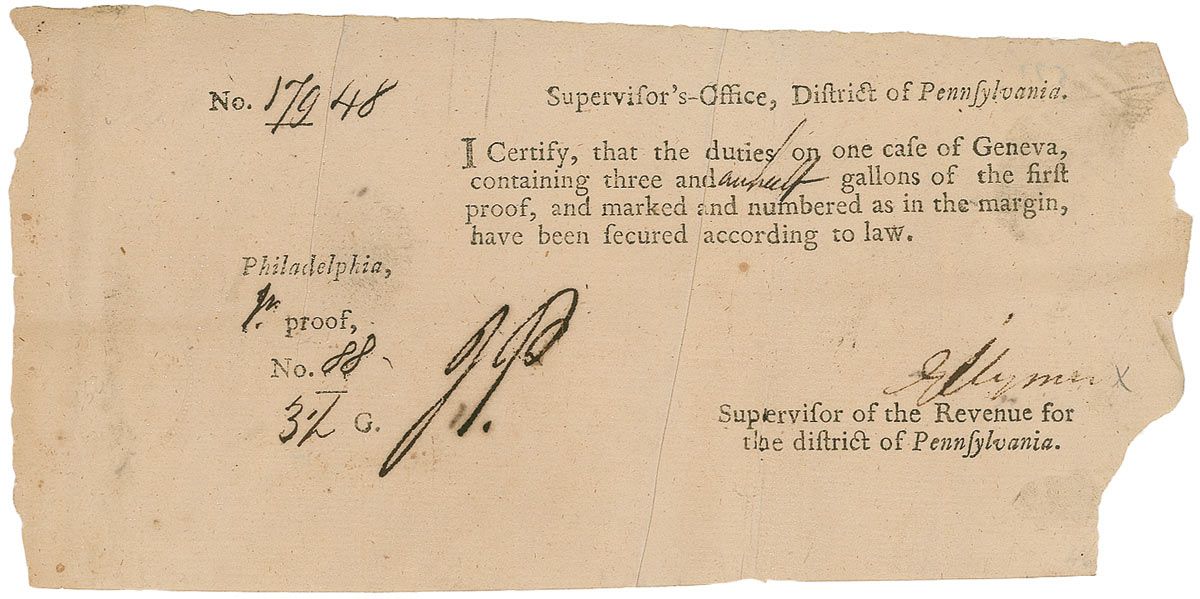 No. 17948
Superviſor's-Office, Diſtrict of Pennſylvania.
I Certify, that the duties on one caſe of Geneva,
containing three and a half gallons of the firſt
proof, and marked and numbered as in the margin,
have been ſecured according to law.
Philadelphia,
proof,
No. 88
3½ G.
GClymer
Superviſor of the Revenue for
the diſtrict of Pennſylvania.